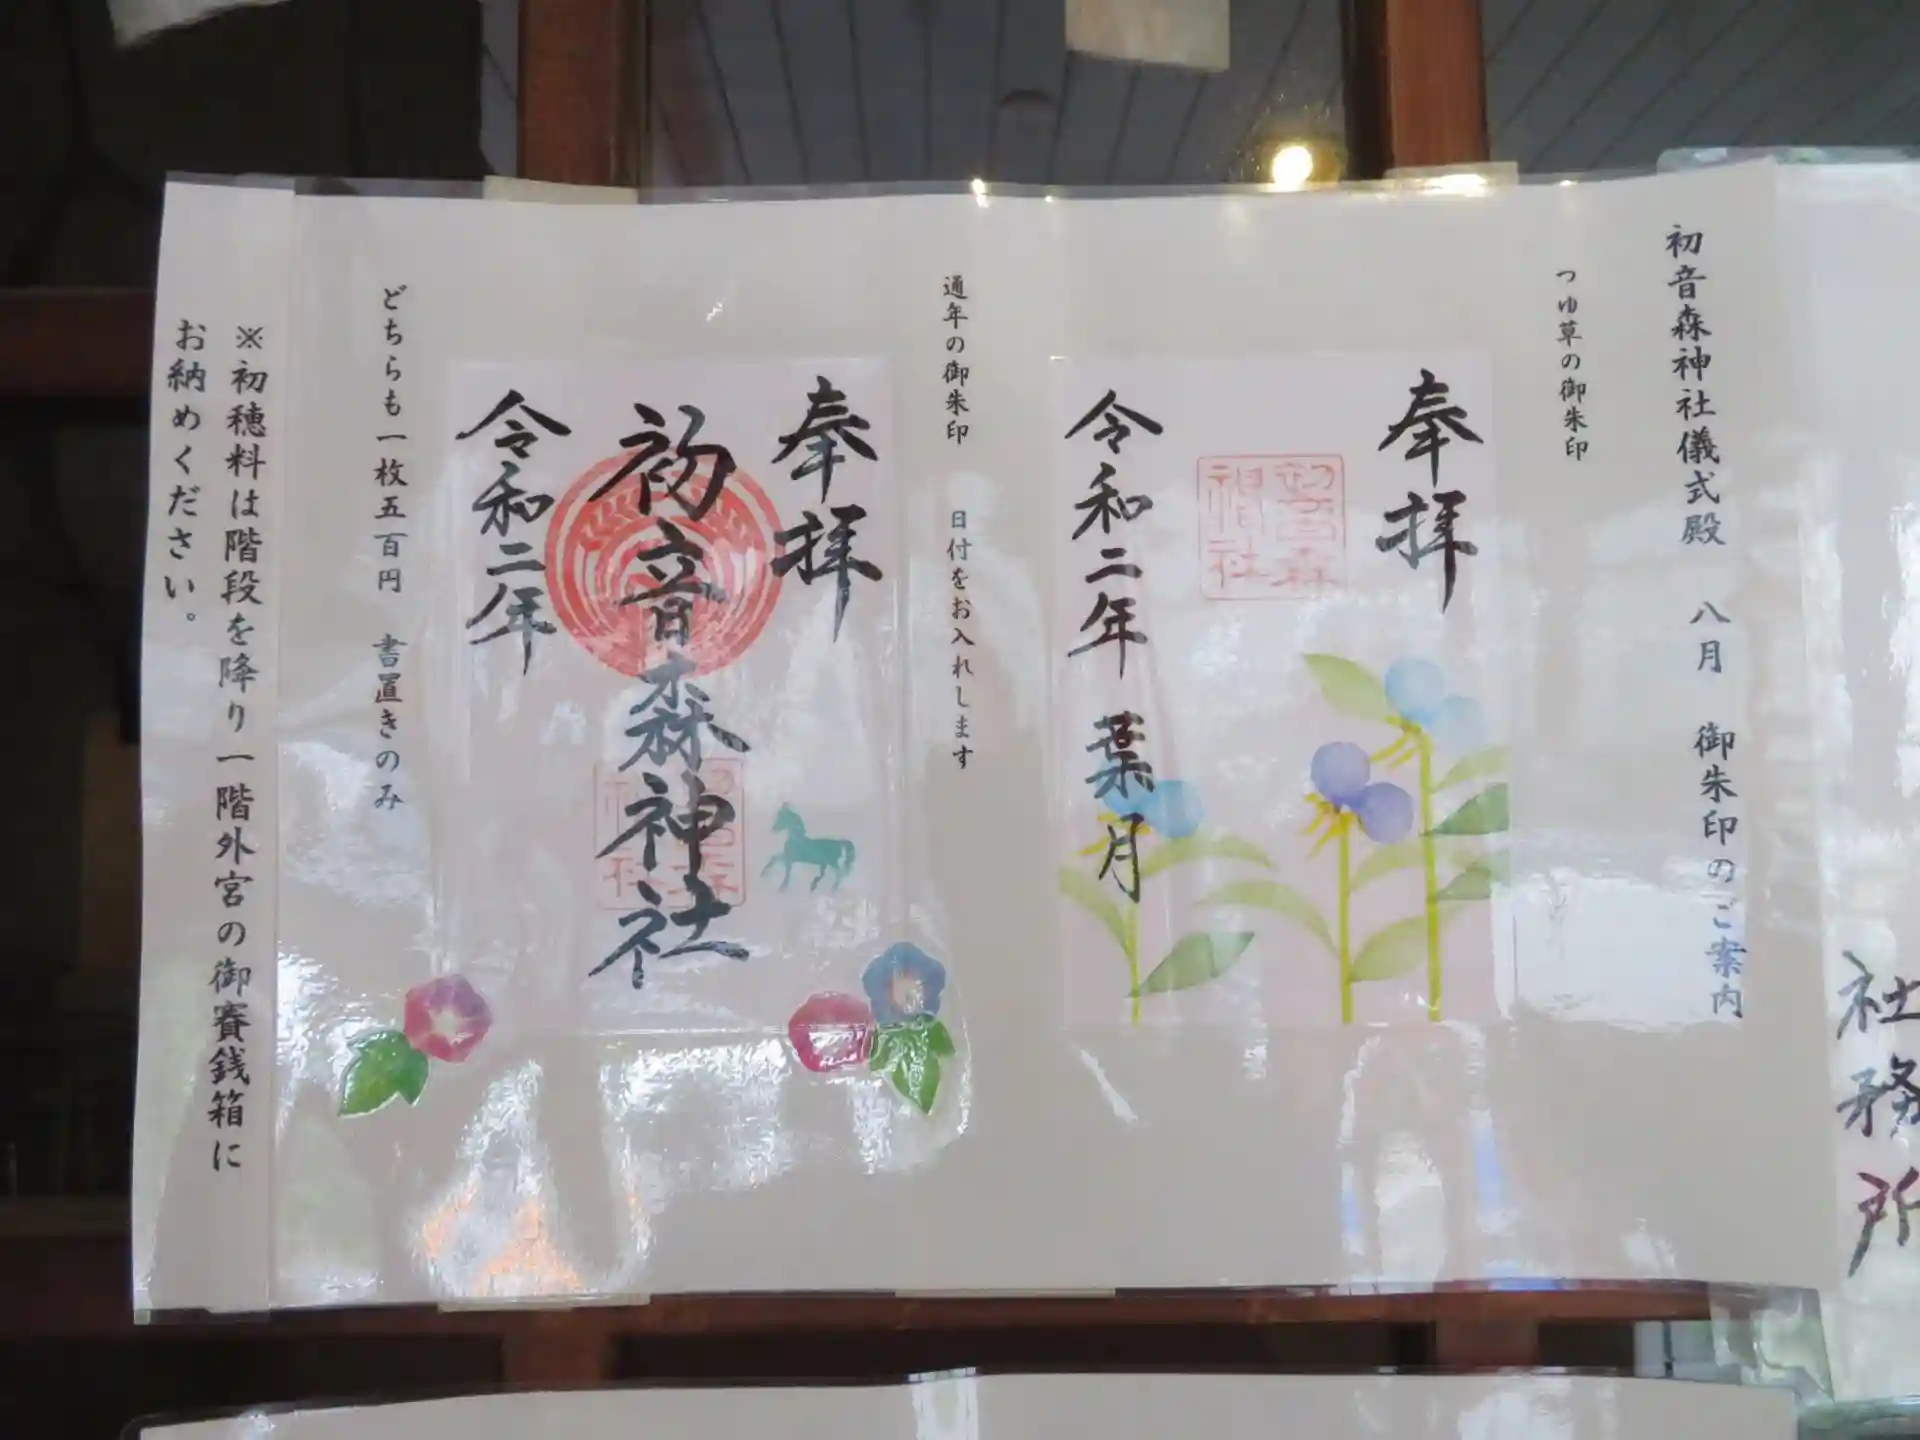 初音森神社儀式殿 八月 御朱印のご案内
つゆ草の御朱印
奉拝
初音森
神社
令和二年 葉月
通年の御朱印 日付をお入れします
奉拝
初音森神社
令和二年
どちらも一枚五百円 書置きのみ
※初穂料は階段を降り一階外宮の御賽銭箱に
お納めください。
社務所